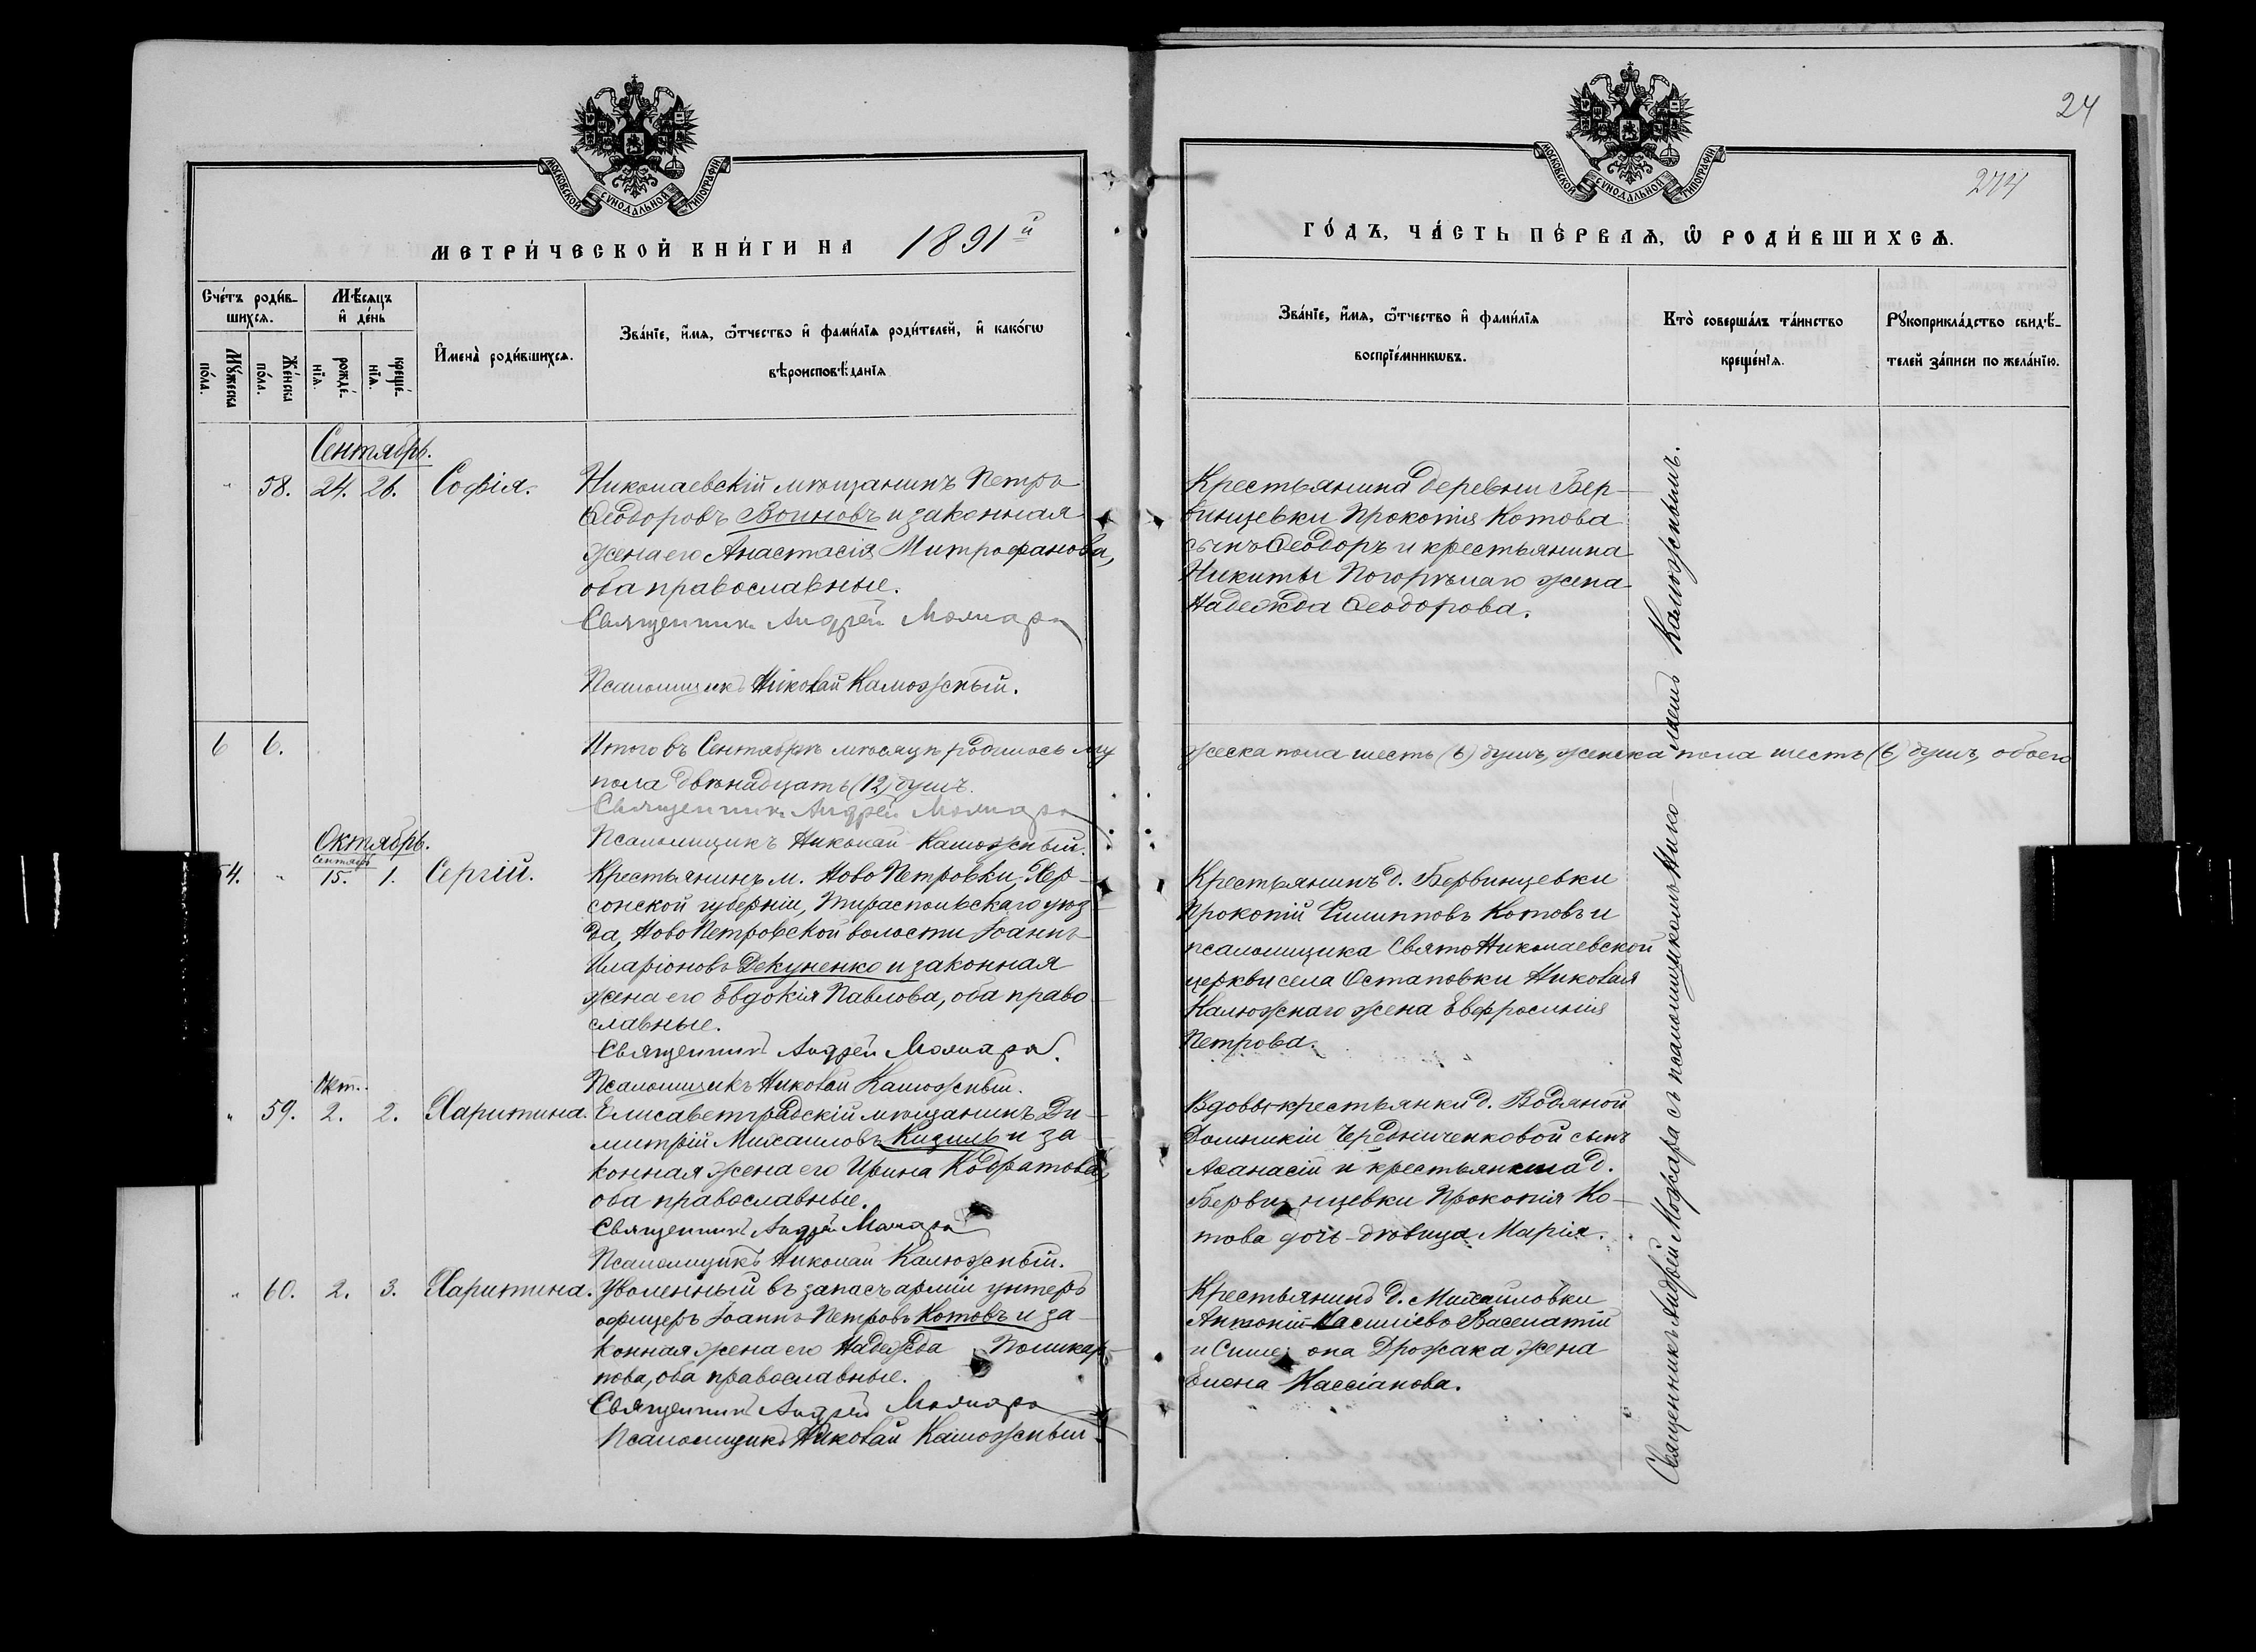 24
274
МОСКОВСКОЙ СѴНОДАЛЬНОЙ ТИПОГРАФІИ
МЕТРИ́ЧЕСКОЙ КНИ́ГИ НА 1891й
Сче́тъ роди́в-
шихсѧ.
Мꙋ́жеска
по́ла.
Же́нска
по́ла.
Мѣ́сѧцъ
и҆ де́нь
рожде́-
нїѧ.
креще́-
нїѧ.
И҆мена̀ роди́вшихсѧ.
Зва́нїе, и҆́мѧ, ѻ҆́тчество и҆ фами́лїѧ роди́телей, и҆ како́гѡ
вѣроисповѣ́данїѧ
Сентябрь.
" 58. 24. 26. Софія.
Николаевскій мѣщанинъ Петръ
Ѳеодоровъ Воиновъ и законная
жена его Анастасія Митрофанова,
оба православные.
Священникъ Андрей
Псаломщикъ Николай Калюжный.
6 6.
Итого въ Сентябрѣ мѣсяцѣ родилось му
пола двѣнадцать (12) душъ.
Священникъ Андрей
Псаломщикъ Николай Калюжный.
Октябрь.
Сентябр
54. " 15. 1. Сергій.
Крестьянинъ м. Ново Петровки, Хер-
сонской губерніи, Тираспольскаго уѣз
да, Ново Петровской волости Іоаннъ
Иларіоновъ Декуненко и законная
жена его Евдокія Павлова, оба право-
славные.
Священникъ Андрей
Псаломщикъ Николай Калюжный.
Окт.
" 59. 2. 2. Харитина.
Елисаветградскій мѣщанинъ Ди-
митрій Михаиловъ Кизиль и за-
конная жена его Ирина Кодратова,
оба православные.
Священникъ Андрей
Псаломщикъ Николай Калюжный.
" 60. 2. 3. Харитина.
Уволенный въ запасъ арміи унтеръ
офицеръ Іоаннъ Петровъ Котовъ и за-
конная жена его Надежда Поликар-
пова, оба православные.
Священникъ Андрей
Псаломщикъ Николай Калюжный
МОСКОВСКОЙ СѴНОДАЛЬНОЙ ТИПОГРАФІИ
ГО́ДЪ, ЧА́СТЬ ПЕ́РВАѦ, Ѡ҆ РОДИ́ВШИХСѦ.
Зва́нїе, и҆́мѧ, ѻ҆́тчество и҆ фами́лїѧ
воспрїе́мникѡвъ.
Кто̀ соверша́лъ та́инство
креще́нїѧ.
Рꙋкоприкла́дство свидѣ́-
телей за́писи по жела́нїю.
Крестьянина деревни Бер-
винцевки Прокопія Котова
сынъ Ѳеодоръ и крестьянина
Никиты Погорѣлаго жена
Надежда Ѳеодорова.
жеска пола шесть (6) душъ, женска пола шесть (6) душъ, обоего
Крестьянинъ д. Бервинцевки
Прокопій Филипповъ Котовъ и
псаломщика Свято Николаевской
церкви села Остаповки Николая
Калюжнаго жена Евфросинія
Петрова.
Вдовы крестьянки д. Водяной
Домникіи Чередниченковой сынъ
Аѳанасій и крестьянина д.
Бервинцевки Прокопія Ко-
това дочь-дѣвица Марія.
Крестьянинъ д. Михаиловки
Антоній
и Симеона Дрожака жена
Елена Кассіанова.
Священникъ Андрей съ псаломщикомъ Нико-
лаемъ Калюжнымъ.